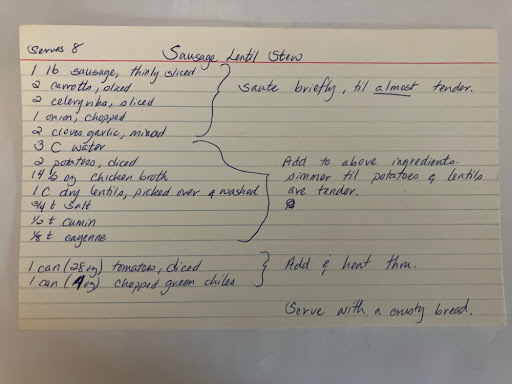 Serves 8
Sausage Lentil Stew
1 lb sausage, thinly sliced
2 carrotts, sliced
2 celery ribs, sliced
1 onion, chopped
2 cloves garlic, minced
Saute briefly, til almost tender.
3 C water
2 potatoes, diced
14 ½ oz chicken broth
1 C dry lentils, picked over & washed
3/4 t salt
½ t cumin
⅛ t cayenne
Add to above ingredients.
Simmer til potatoes & lentils
are tender.
1 can (28 oz) tomatoes, diced
1 can (4 oz) chopped green chiles
Add & heat thru.
Serve with a crusty bread.